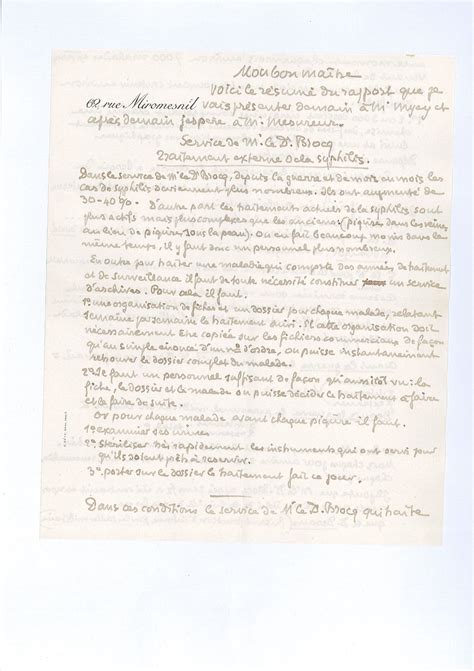 Mon bon maître
Voici le résumé du rapport que je
62, rue Miromesnil vais présenter demain à Mr et
après demain j'espère à Mr Mesureur.
Service de Mr le Dr Brocq
Traitement externe de la syphilis.
Dans le service de Mr le Dr Brocq, depuis la guerre et de mois en mois les
cas de syphilis deviennent plus nombreux. Ils ont augmenté de
30-40%. D'autre part les traitements actuels de la syphilis sont
plus actifs mais plus complexes que les anciens (piqûre dans les veines
au lieu de piqûre sous la peau). On en fait beaucoup moins dans le
même temps, il y faut donc un personnel plus nombreux.
En outre pour traiter une maladie qui comporte des années de traitement
et de surveillance il faut de toute nécessité constituer un service
d'archives. Pour cela il faut.
1° une organisation de fiches et un dossier pour chaque malade, relatant
semaine par semaine le traitement suivi. Et cette organisation doit
nécessairement être copiée sur les fichiers commerciaux de façon
qu'au simple énoncé d'un n° d'ordre, on puisse instantanément
retrouver le dossier complet du malade.
2° Il faut un personnel suffisant de façon qu'aussitôt vu: la
fiche, le dossier et le malade on puisse décider le traitement à faire
et le faire de suite.
Or pour chaque malade avant chaque piqûre il faut.
1° examiner ses urines
2° stériliser très rapidement les instruments qui ont servi pour
qu'ils soient prêts à resservir.
3° porter sur le dossier le traitement fait ce jour.
Dans ces conditions le service de Mr le Dr Brocq qui traite